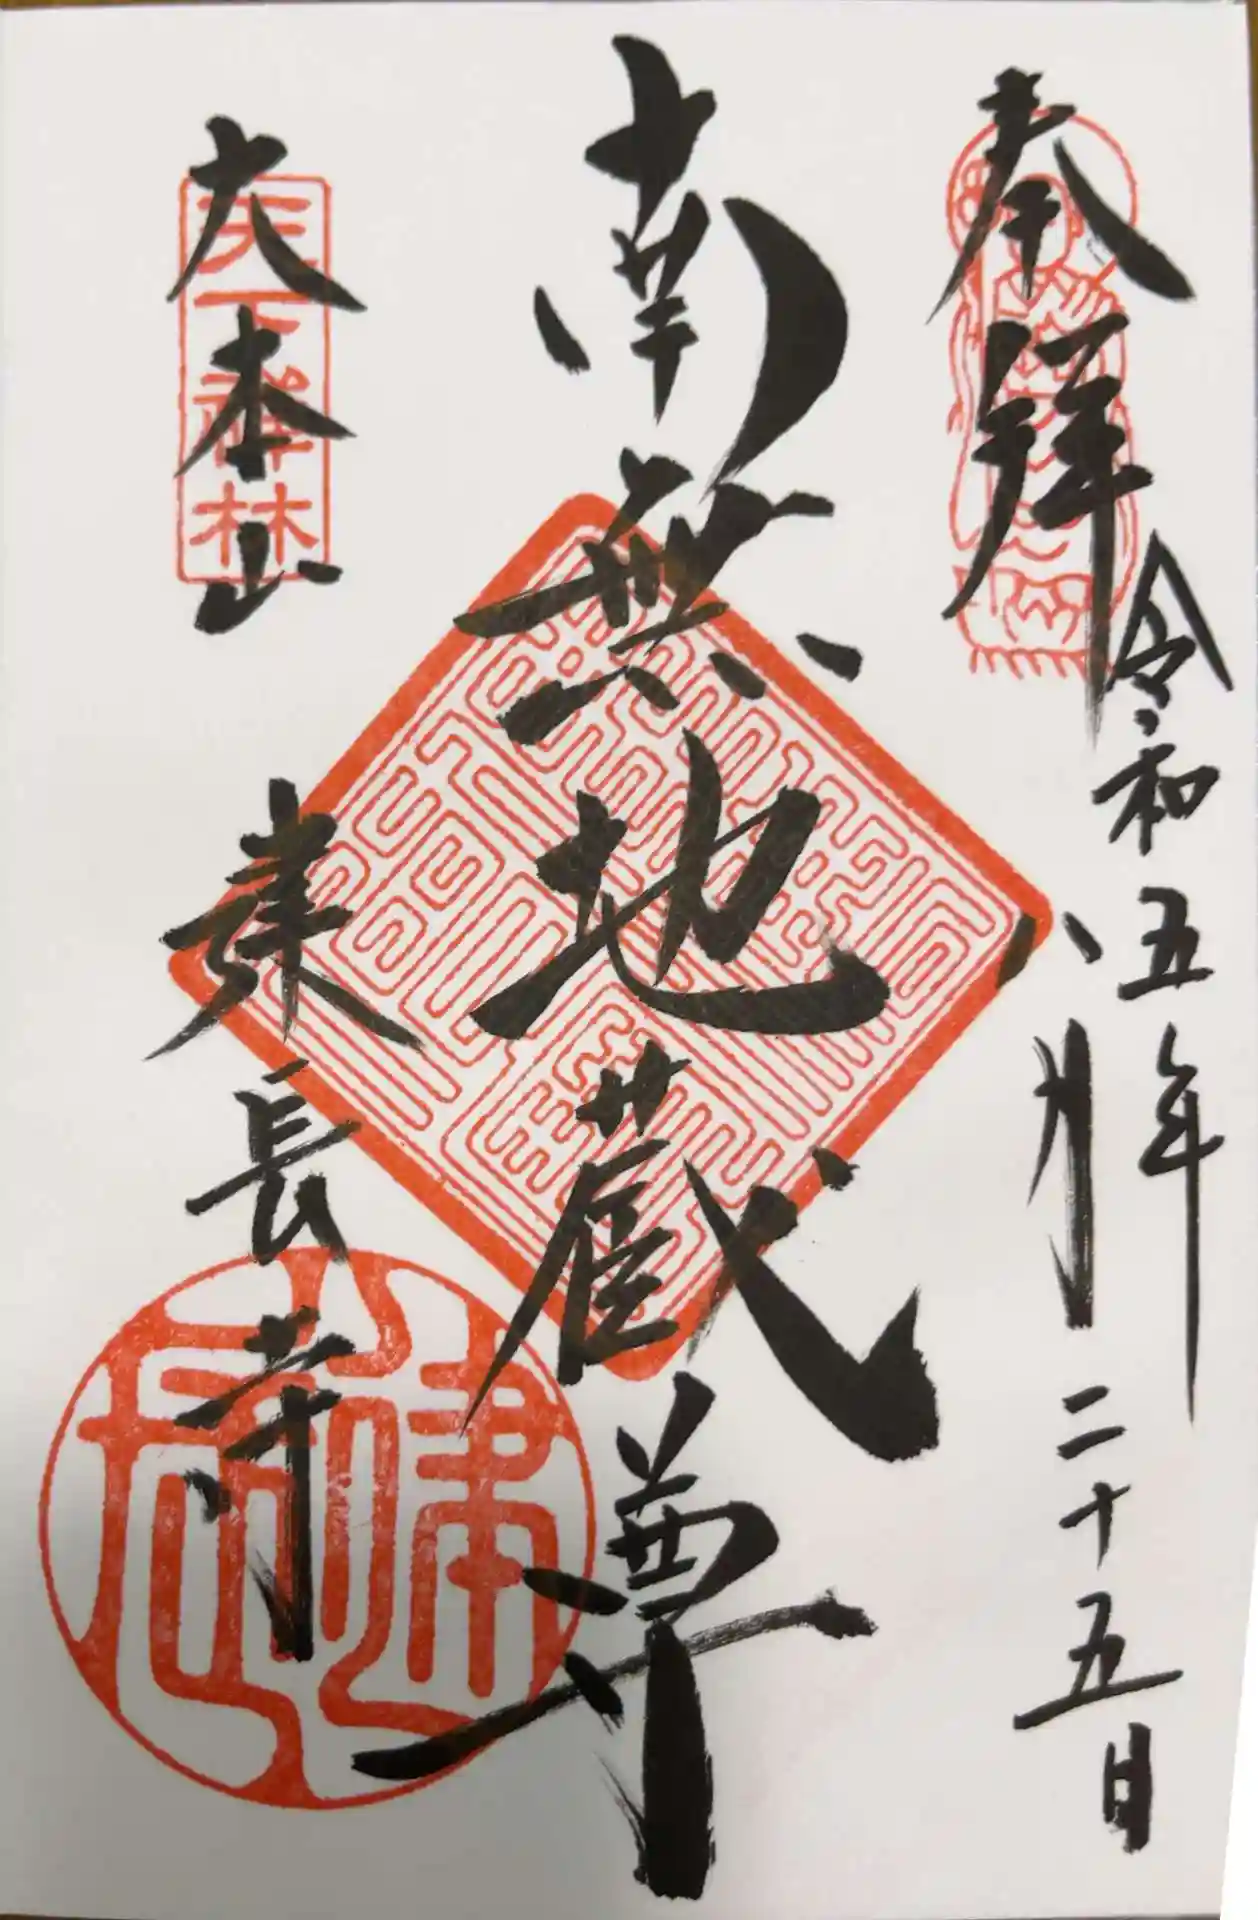 奉拝
令和五年
八月二十五日
南無地蔵尊
大本山
建長寺
天下禅林